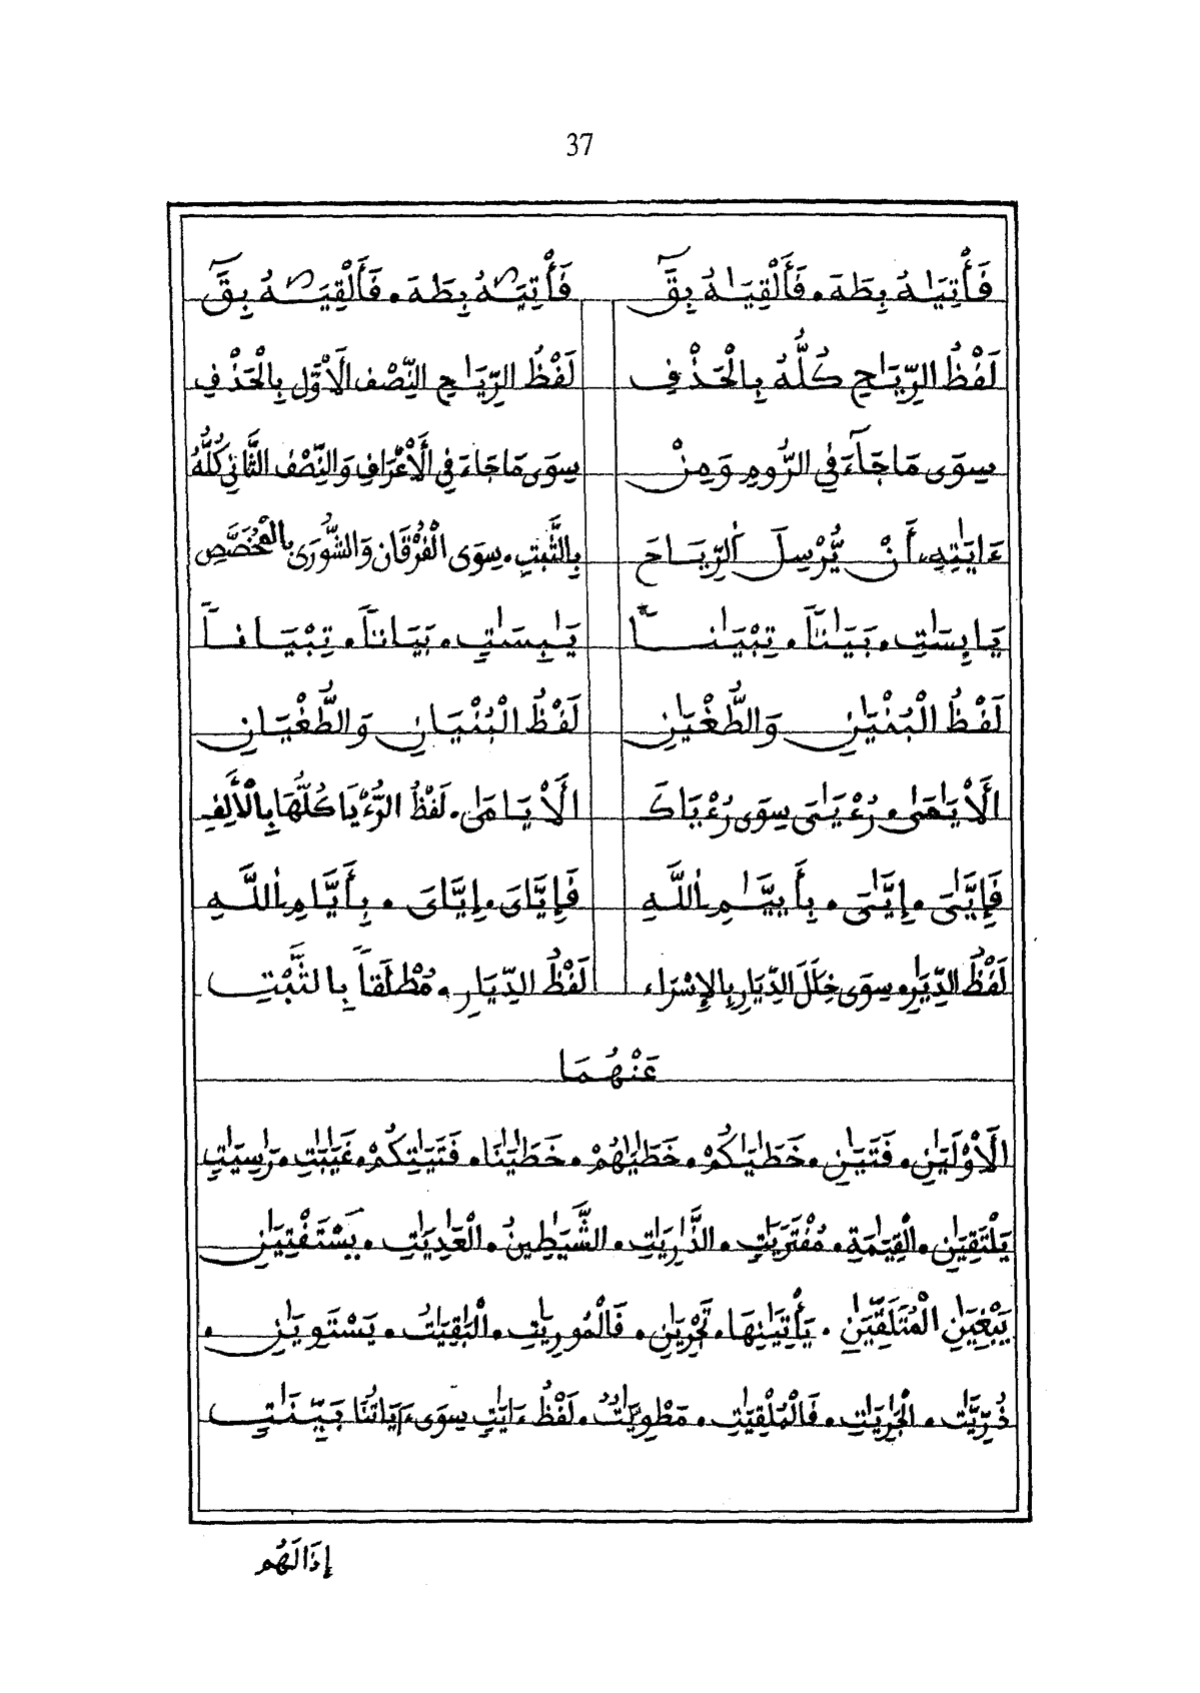 37
فَأْتِيَٰهُ بِطَهَ • فَأَلْقِيَٰهُ بِقَٓ
لَفْظُ الرِّيَٰحِ كُلُّهُ بِالْحَذْفِ
سِوَى مَا جَآءَ فِي الرُّومِ وَمِنْ
ءَايَٰتِهِۦ أَنْ يُّرْسِلَ اَلرِّيَاحَ
يَابِسَٰتٍ • بَيَٰتاً • تِبْيَٰناً
لَفْظُ الْبُنْيَٰنِ وَالطُّغْيَٰنِ
اَلَايَٰمَىٰ • رُءْيَٰىَ سِوَى رُءْيَاكَ
فَإِيَّٰىَ • إِيَّٰىَ • بِأَييَّٰمِ اِللَّهِ
لَفْظُ الدِّيَٰرِ • سِوَى خِلَلَ الدِّيَارِ بِالإِسْرَاء
فَأْتِيَاهُ بِطَهَ • فَأَلْقِيَاهُ بِقَٓ
لَفْظُ الرِّيَاحِ النِّصْف الَاوَّل بِالْحَذْفِ
سِوَى مَا جَاءَ فِي الَاعْرَافِ وَالنِّصْف الثَّانِي كُلُّهُ
بِالثَّبتِ • سِوَى الْفُرْقَانِ وَالشُّورَى بالْمُخَصَّصِ
يَٰبِسَٰتٍ • بَيَاتاً • تِبْيَاناً
لَفْظُ الْبُنْيَانِ وَالطُّغْيَانِ
اَلَايَامَىٰ • لَفْظُ الرُّءْيَا كُلُّهَا بِالَالِفِ
فَإِيَّاىَ • إِيَّاىَ • بِأَيَّامِ اِللَّهِ
لَفْظُ الدِّيَارِ • مُطْلَقاً بِالثَّبْتِ
عَنْهُمَا
اَلَاوْلَيَٰنِ • فَتَيَٰنِ • خَطَٰيَٰكُمْ • خَطَٰيَٰهُمْ • خَطَٰيَٰنَا • فَتَيَٰتِكُمْ • غَيَٰبَٰتِ • رَٰسِيَٰتٍ
يَلْتَقِيَٰنِ • الْقِيَٰمَةِ • مُفْتَرَيَٰتٍ • الذَّٰرِيَٰتِ • الشَّيَٰطِينُ • الْعَٰدِيَٰتِ • يَسْتَفْتِيَٰنِ
يَبْغِيَٰنِ الْمُتَلَقِّيَٰنِ • يَأْتِيَٰنِهَا • تَجْرِيَٰنِ • فَالْمُورِيَٰتِ • الْبَٰقِيَٰتُ • يَسْتَوِيَٰنِ •
ذُرِّيَّٰت • الْجَٰرِيَٰتِ • فَالْمُلْقِيَٰتِ • مَطْوِيَّٰتٌ • لَفْظُ ءَايَٰتِ سِوَى ءَايَاتُنَا بَيِّنَٰتٍ
إِذَا لَهُم